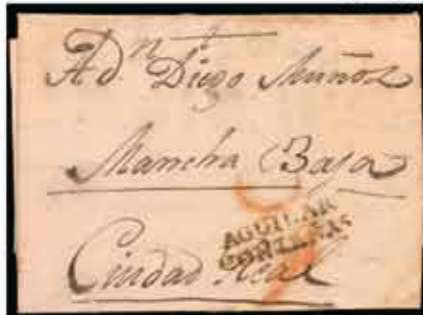 A Dn Diego Muñoz
Mancha Baja
AGUILAR
Ciudad Real